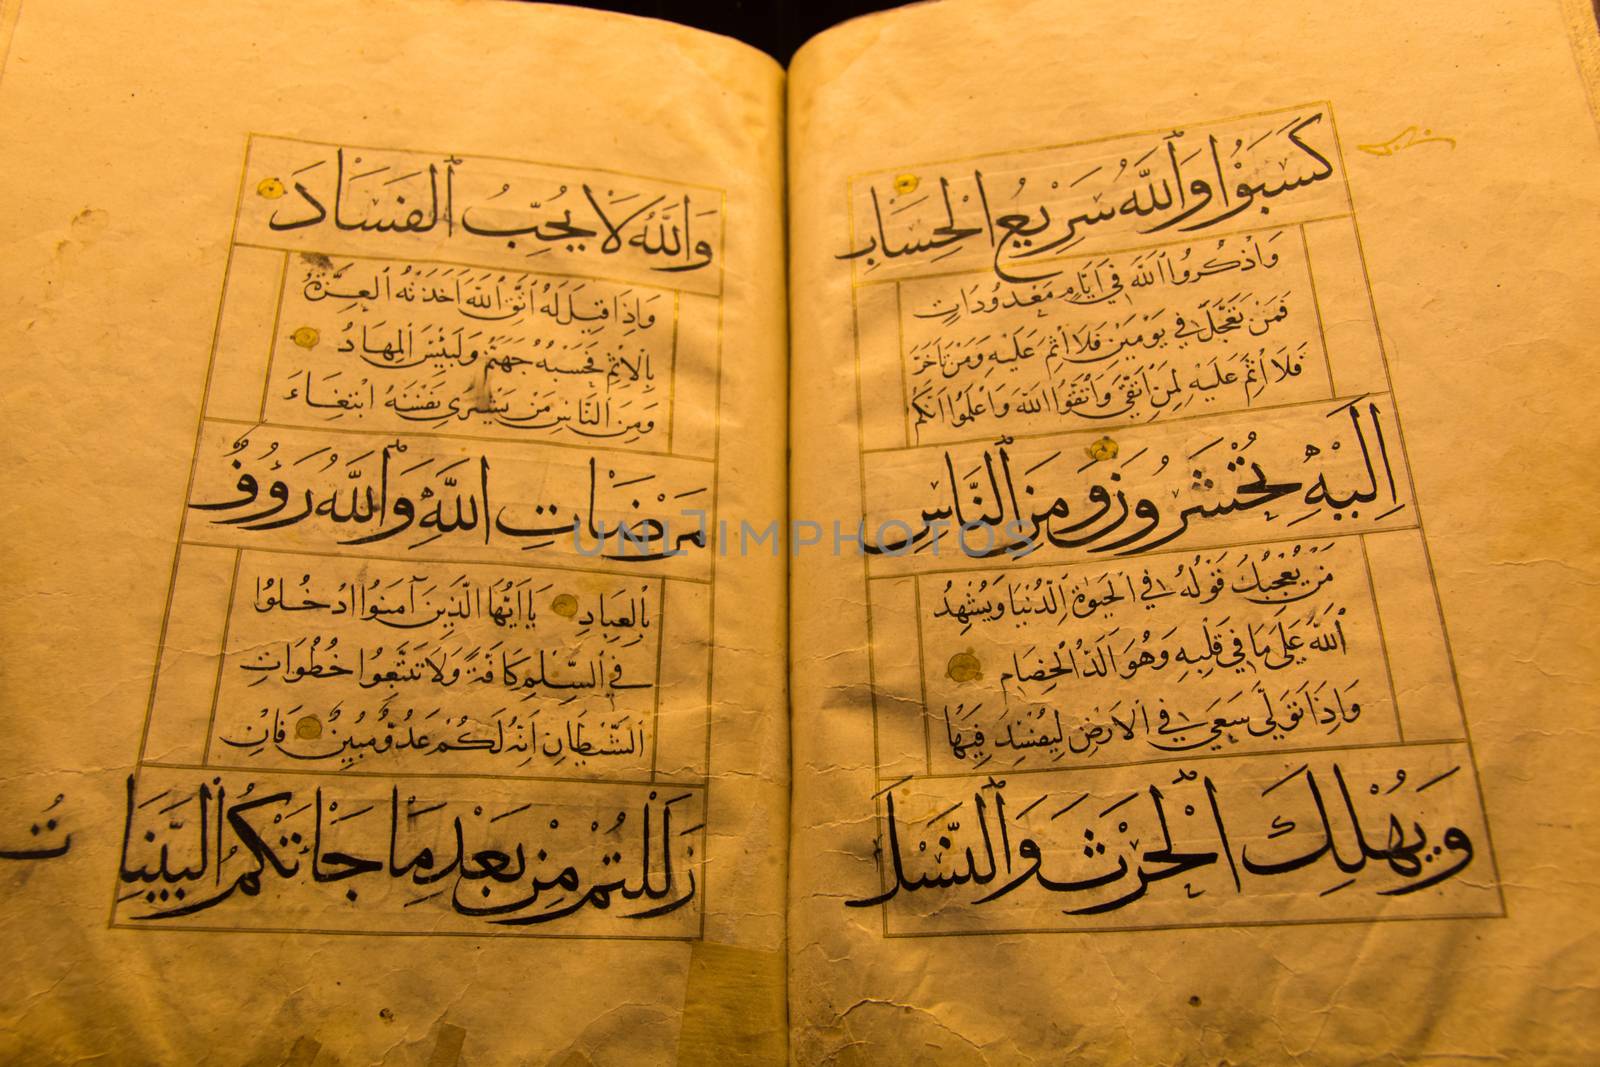 كَسَبُوْا وَٱللَّهُ سَرِيعُ الْحِسَابِ
وَاذْكُرُوا اللَّهَ فِي أَيَّامٍ مَعْدُودَاتٍ
فَمَنْ تَعَجَّلَ فِي يَوْمَيْنِ فَلَا اثْمَ عَلَيْهِ وَمَنْ تَأَخَّرَ
فَلَا اثْمَ عَلَيْهِ لِمَنِ اتَّقَىٰ وَاتَّقُوا اللَّهَ وَاعْلَمُوا أَنَّكُمْ
إِلَيْهِ تُحْشَرُونَ وَمِنَ النَّاسِ
مَنْ يُعْجِبُكَ قَوْلُهُ فِي الْحَيَوٰةِ الدُّنْيَا وَيُشْهِدُ
اللَّهَ عَلَىٰ مَا فِي قَلْبِهِ وَهُوَ أَلَدُّ الْخِصَامِ
وَإِذَا تَوَلَّىٰ سَعَىٰ فِي الْأَرْضِ لِيُفْسِدَ فِيهَا
وَيُهْلِكَ الْحَرْثَ وَالنَّسْلَ
وَاللَّهُ لَا يُحِبُّ الْفَسَادَ
وَإِذَا قِيلَ لَهُ اتَّقِ اللَّهَ أَخَذَتْهُ الْعِزَّةُ
بِالْإِثْمِ فَحَسْبُهُ جَهَنَّمُ وَلَبِئْسَ الْمِهَادُ
وَمِنَ النَّاسِ مَنْ يَشْرِي نَفْسَهُ ابْتِغَاءَ
مَرْضَاتِ اللَّهِ وَاللَّهُ رَؤُوفٌ
بِالْعِبَادِ يَا أَيُّهَا الَّذِينَ آمَنُوا ادْخُلُوا
فِي السِّلْمِ كَافَّةً وَلَا تَتَّبِعُوا خُطُوَاتِ
الشَّيْطَانِ إِنَّهُ لَكُمْ عَدُوٌّ مُبِينٌ فَإِنْ
زَلَلْتُمْ مِنْ بَعْدِ مَا جَاءَتْكُمُ الْبَيِّنَاتُ
UNLIMPHOTOS